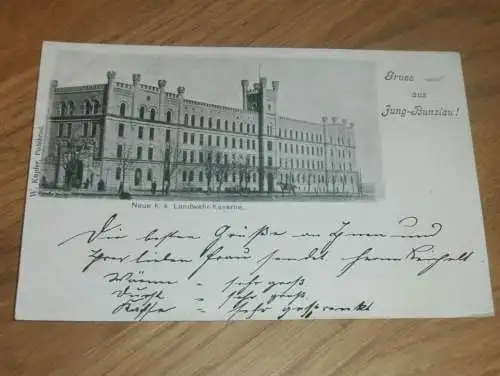 Gruss
aus
Jung-Bunzlau!
Neue k. k. Landwehr-Kaserne.
Die besten Grüße an Ihnen und
Ihrer lieben Frau sendet
Wärme = sehr groß
Durst = sehr groß
Kaffe = sehr